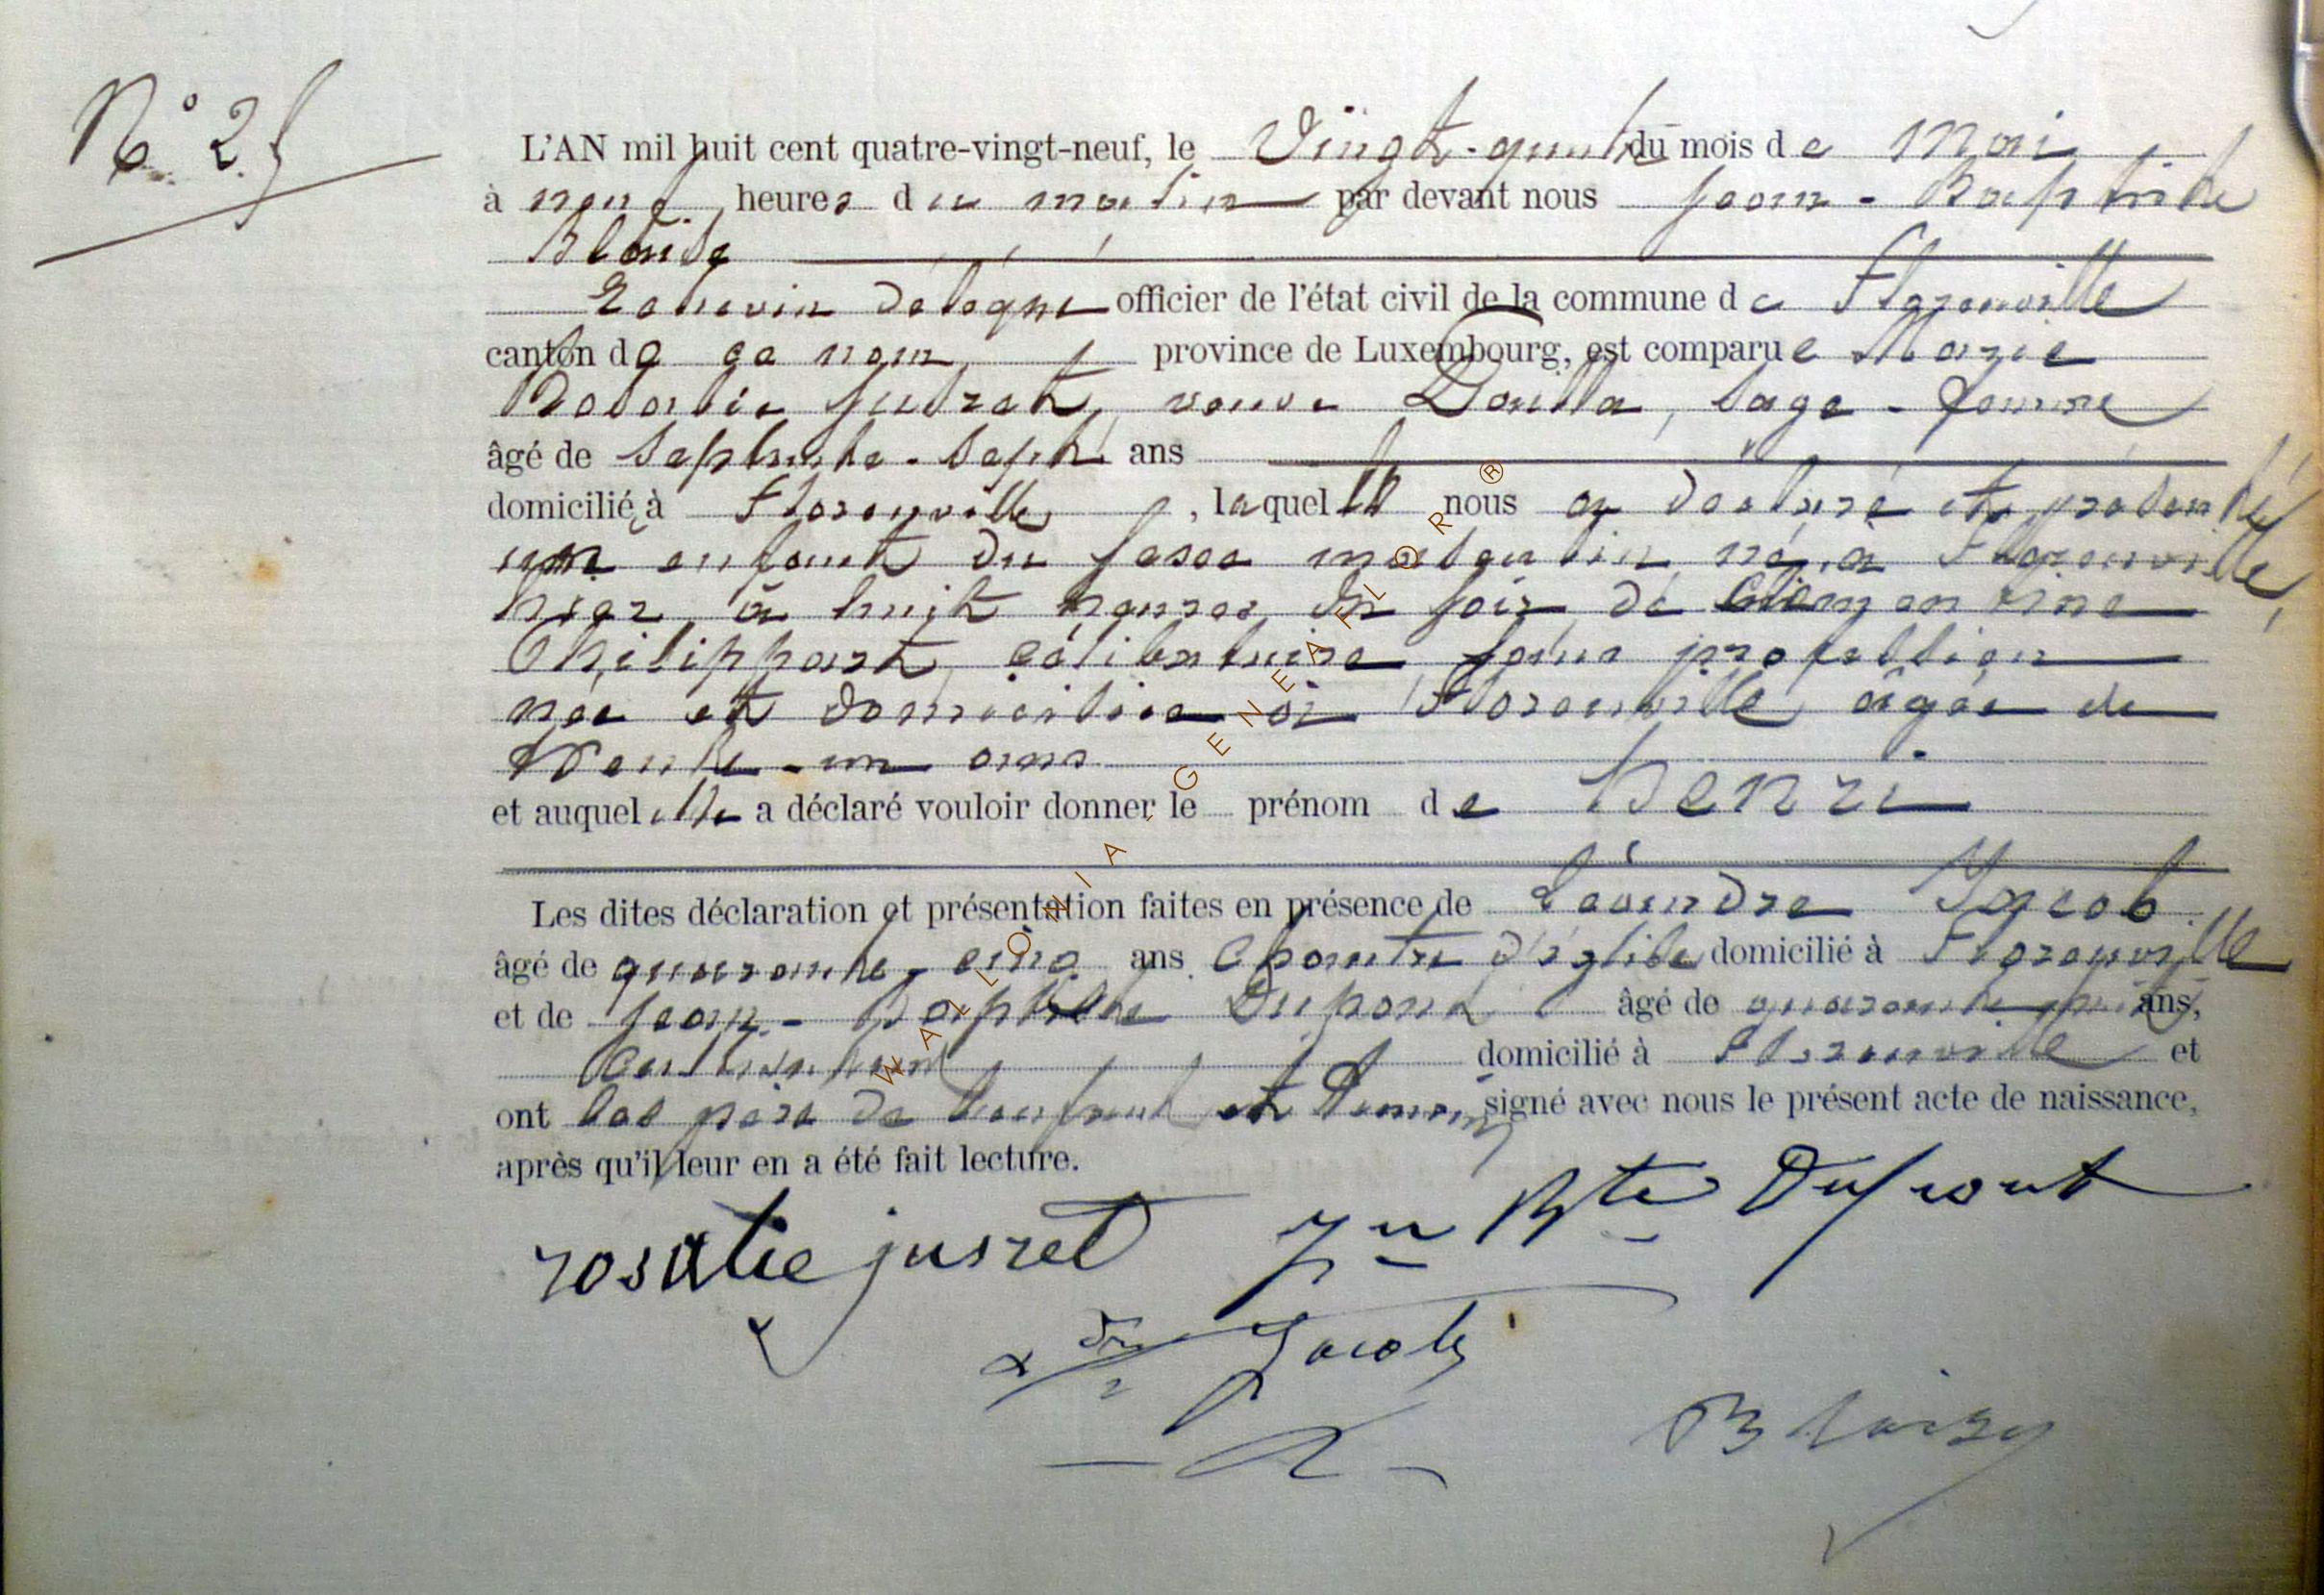 N° 25
L'AN mil huit cent quatre-vingt-neuf, le Vingt-quatre du mois de Mai
à neuf heures du matin par devant nous Jean-Baptiste
Blaise
Echevin délégué officier de l'état civil de la commune de Florenville
canton de ce nom, province de Luxembourg, est comparue Marie
Rosalie Jusret, veuve Doulla, sage-femme
âgé de septante-sept ans
domicilié à Florenville, laquelle nous a déclaré et présenté
un enfant du sexe masculin, né à Florenville,
hier à huit heures du soir de Clémentine
Philippart, célibataire, sans profession
née et domiciliée à Florenville, âgée de
trente-un ans
et auquel elle a déclaré vouloir donner le prénom de Henri
Les dites déclaration et présentation faites en présence de Léandre Jacob
âgé de quarante-cinq ans Chantre d'église domicilié à Florenville
et de Jean-Baptiste Dupont âgé de quarante-huit ans,
Cultivateur domicilié à Florenville et
ont les père de l'enfant et témoins signé avec nous le présent acte de naissance,
après qu'il leur en a été fait lecture.
rosalie jusret Jn Bte Dupont
Jacob
Blaise
WALLONIA GENEALOR ®